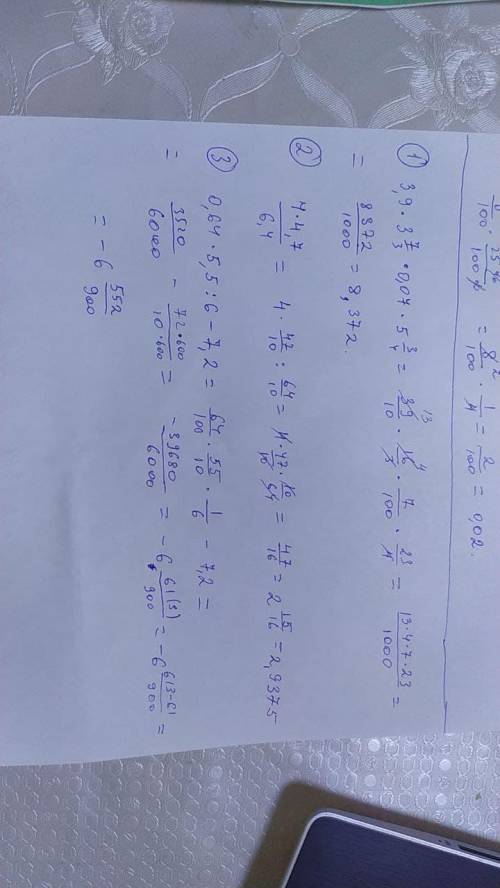 8/100 · 25%/100% = 8/100 · 1/4 = 2/100 = 0,02.
① 3,9 · 3 7/3 · 0,07 · 5 3/4 = 39/10 · 16/3 · 7/100 · 23/4 = 13·4·7·23/1000 =
= 8372/1000 = 8,372.
② 4·4,7/6,4 = 4 · 47/10 : 64/10 = 4·47·10/10·64 = 47/16 = 2 15/16 = 2,9375
③ 0,64 · 5,5 : 6 - 7,2 = 64/100 · 55/10 · 1/6 - 7,2 =
= 3520/6000 - 72·600/10·600 = -39680/6000 = -6 61(3)/900 = -6 613-61/900 =
= -6 552/900